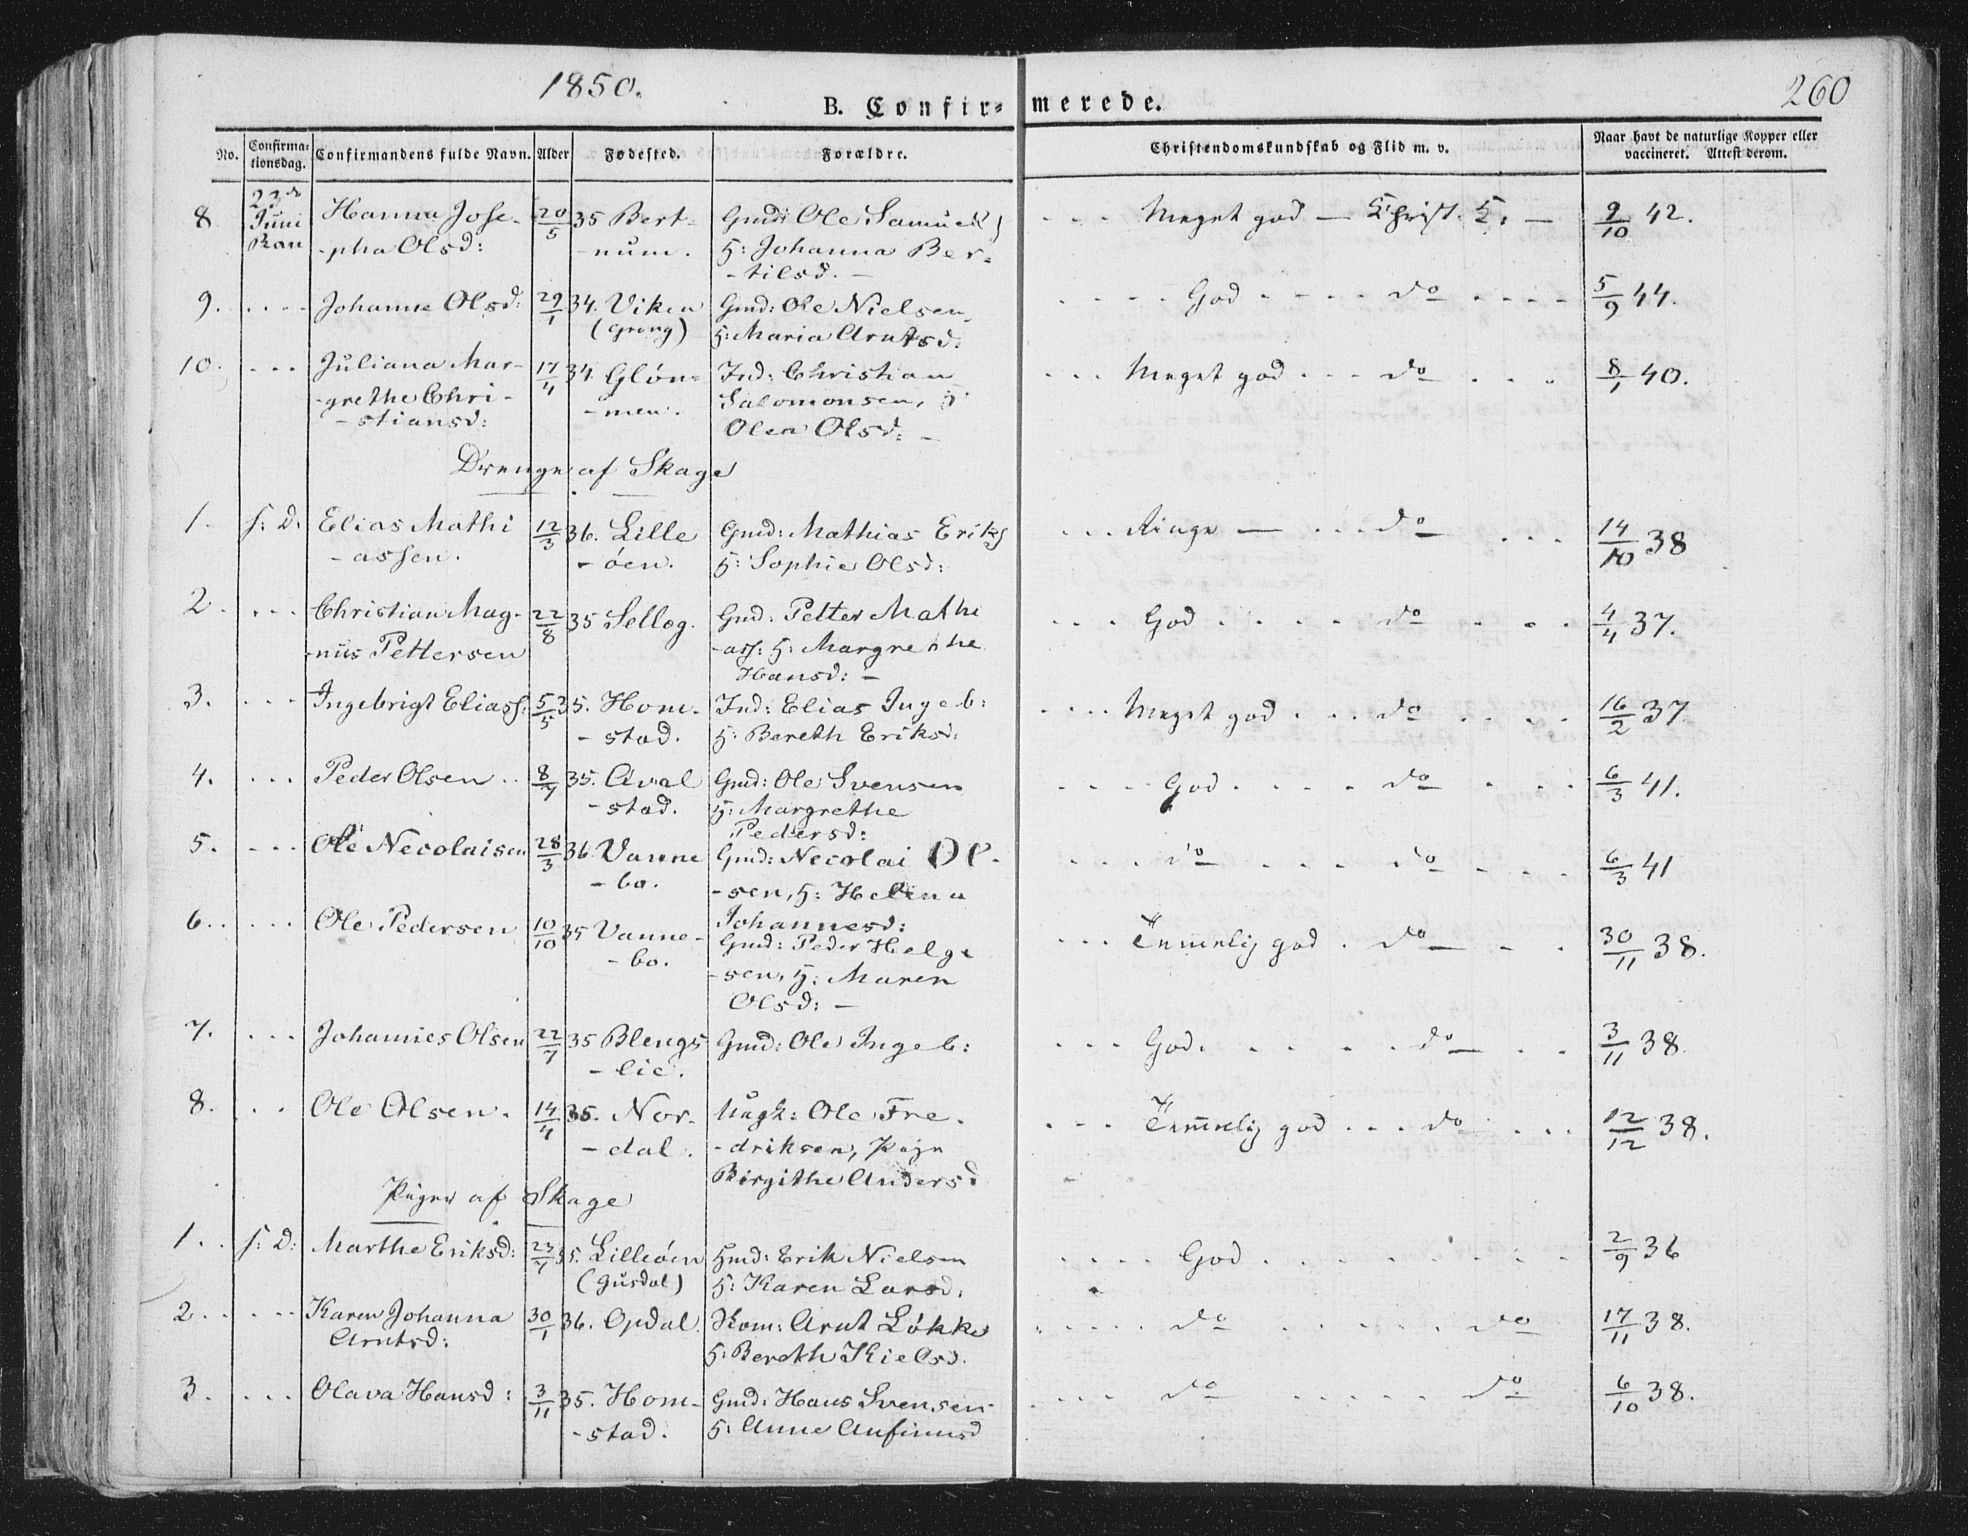 1850.
260
B. Confirmerede.
No. Confirmationsdag. Confirmandens fulde Navn. Alder Fødested. Forældre. Christendomskundskab og Flid m. v. Naar havt de naturlige Kopper eller vaccineret. Attest derom.
8. 23de Juni Ran Hanna Jose- 20/5 35 Bert- Gmd: Ole Samuels) . . . Meget god — Christ. K: — 9/10 42.
-pha Olsd: -num. H: Johanna Ber-
-tilsd. —
9. . . . . Johanne Olsd: 29/1 34. Viken Gmd: Ole Nielsen, . . . . God . . . . do . . . . 5/9 44.
(Grong) H: Maria Arntsd:
10. . . . Juliana Mar- 17/4 34. Gløn- Ind: Christian . . . Meget god . . . do . . . 8/1 40.
-grethe Chri- -men. Salomonsen, H:
-stiansd: Olea Olsd: —
Drenge af Skage
1. s: D: Elias Mathi 12/3 36. Lille Gmd: Mathias Eriks . . . Ringe — . . . do . . . 14/10 38
-assen. -øen. H: Sophie Olsd:
2. . . . Christian Mag- 22/8 35 Selløg. Gmd: Petter Mathi . . . God . . . . do . . . 4/4 37.
-nus Pettersen -ass: H: Margrethe
Hansd: —
3. . . . Ingebrigt Eliass: 5/5 35. Hom- Ind: Elias Ingeb: . . . . Meget god . . . do . . . . 16/2 37.
-stad. H: Bereth Eriksd:
4. . . . Peder Olsen . . 8/7 35. Aval Gmd: Ole Svensen . . . . God . . . . do . . . 6/3 41.
-stad. H: Margrethe
Pedersd:
5. . . . Ole Necolaisen 28/3 36. Vanne Gmd: Necolai Ol- . . . do . . . do . . . . 6/3 41
-bo. -sen, H: Helena
Johannesd:
6. . . . . Ole Pedersen 10/10 35 Vanne- Gmd: Peder Helge . . . Temmelig god . do — . . 30/11 38.
-bo. -sen, H: Maren
Olsd: —
7. . . . Johannes Olsen 22/7 35 Blengs Gmd: Ole Ingeb: . . . God . . . . . do . . 3/11 38.
-lie.
8. . . Ole Olsen. 14/4 35. Nor- Ungk: Ole Fre- . . . Temmelig god . . . do . . . 12/12 38.
-dal. -driksen, Pige
Birgithe Andersd
Piger af Skage
1. . s: D: Marthe Eriksd: 23/7 35. Lilleøen Hmd: Erik Nielsen . . . . God . . . . . . . 2/9 36
(Gusdal) H: Karen Larsd:
2. . . . . Karen Johanna 30/1 36. Opdal. Kom: Arnt Løkke . . . . do . . . . . do 17/11 38.
Arntsd: H: Bereth Kielsd.
3. . . . Olava Hansd: 3/11 35. Hom- Gmd: Hans Svensen . . . do . . . . . do 6/10 38.
-stad. H: Anne Anfinnsd